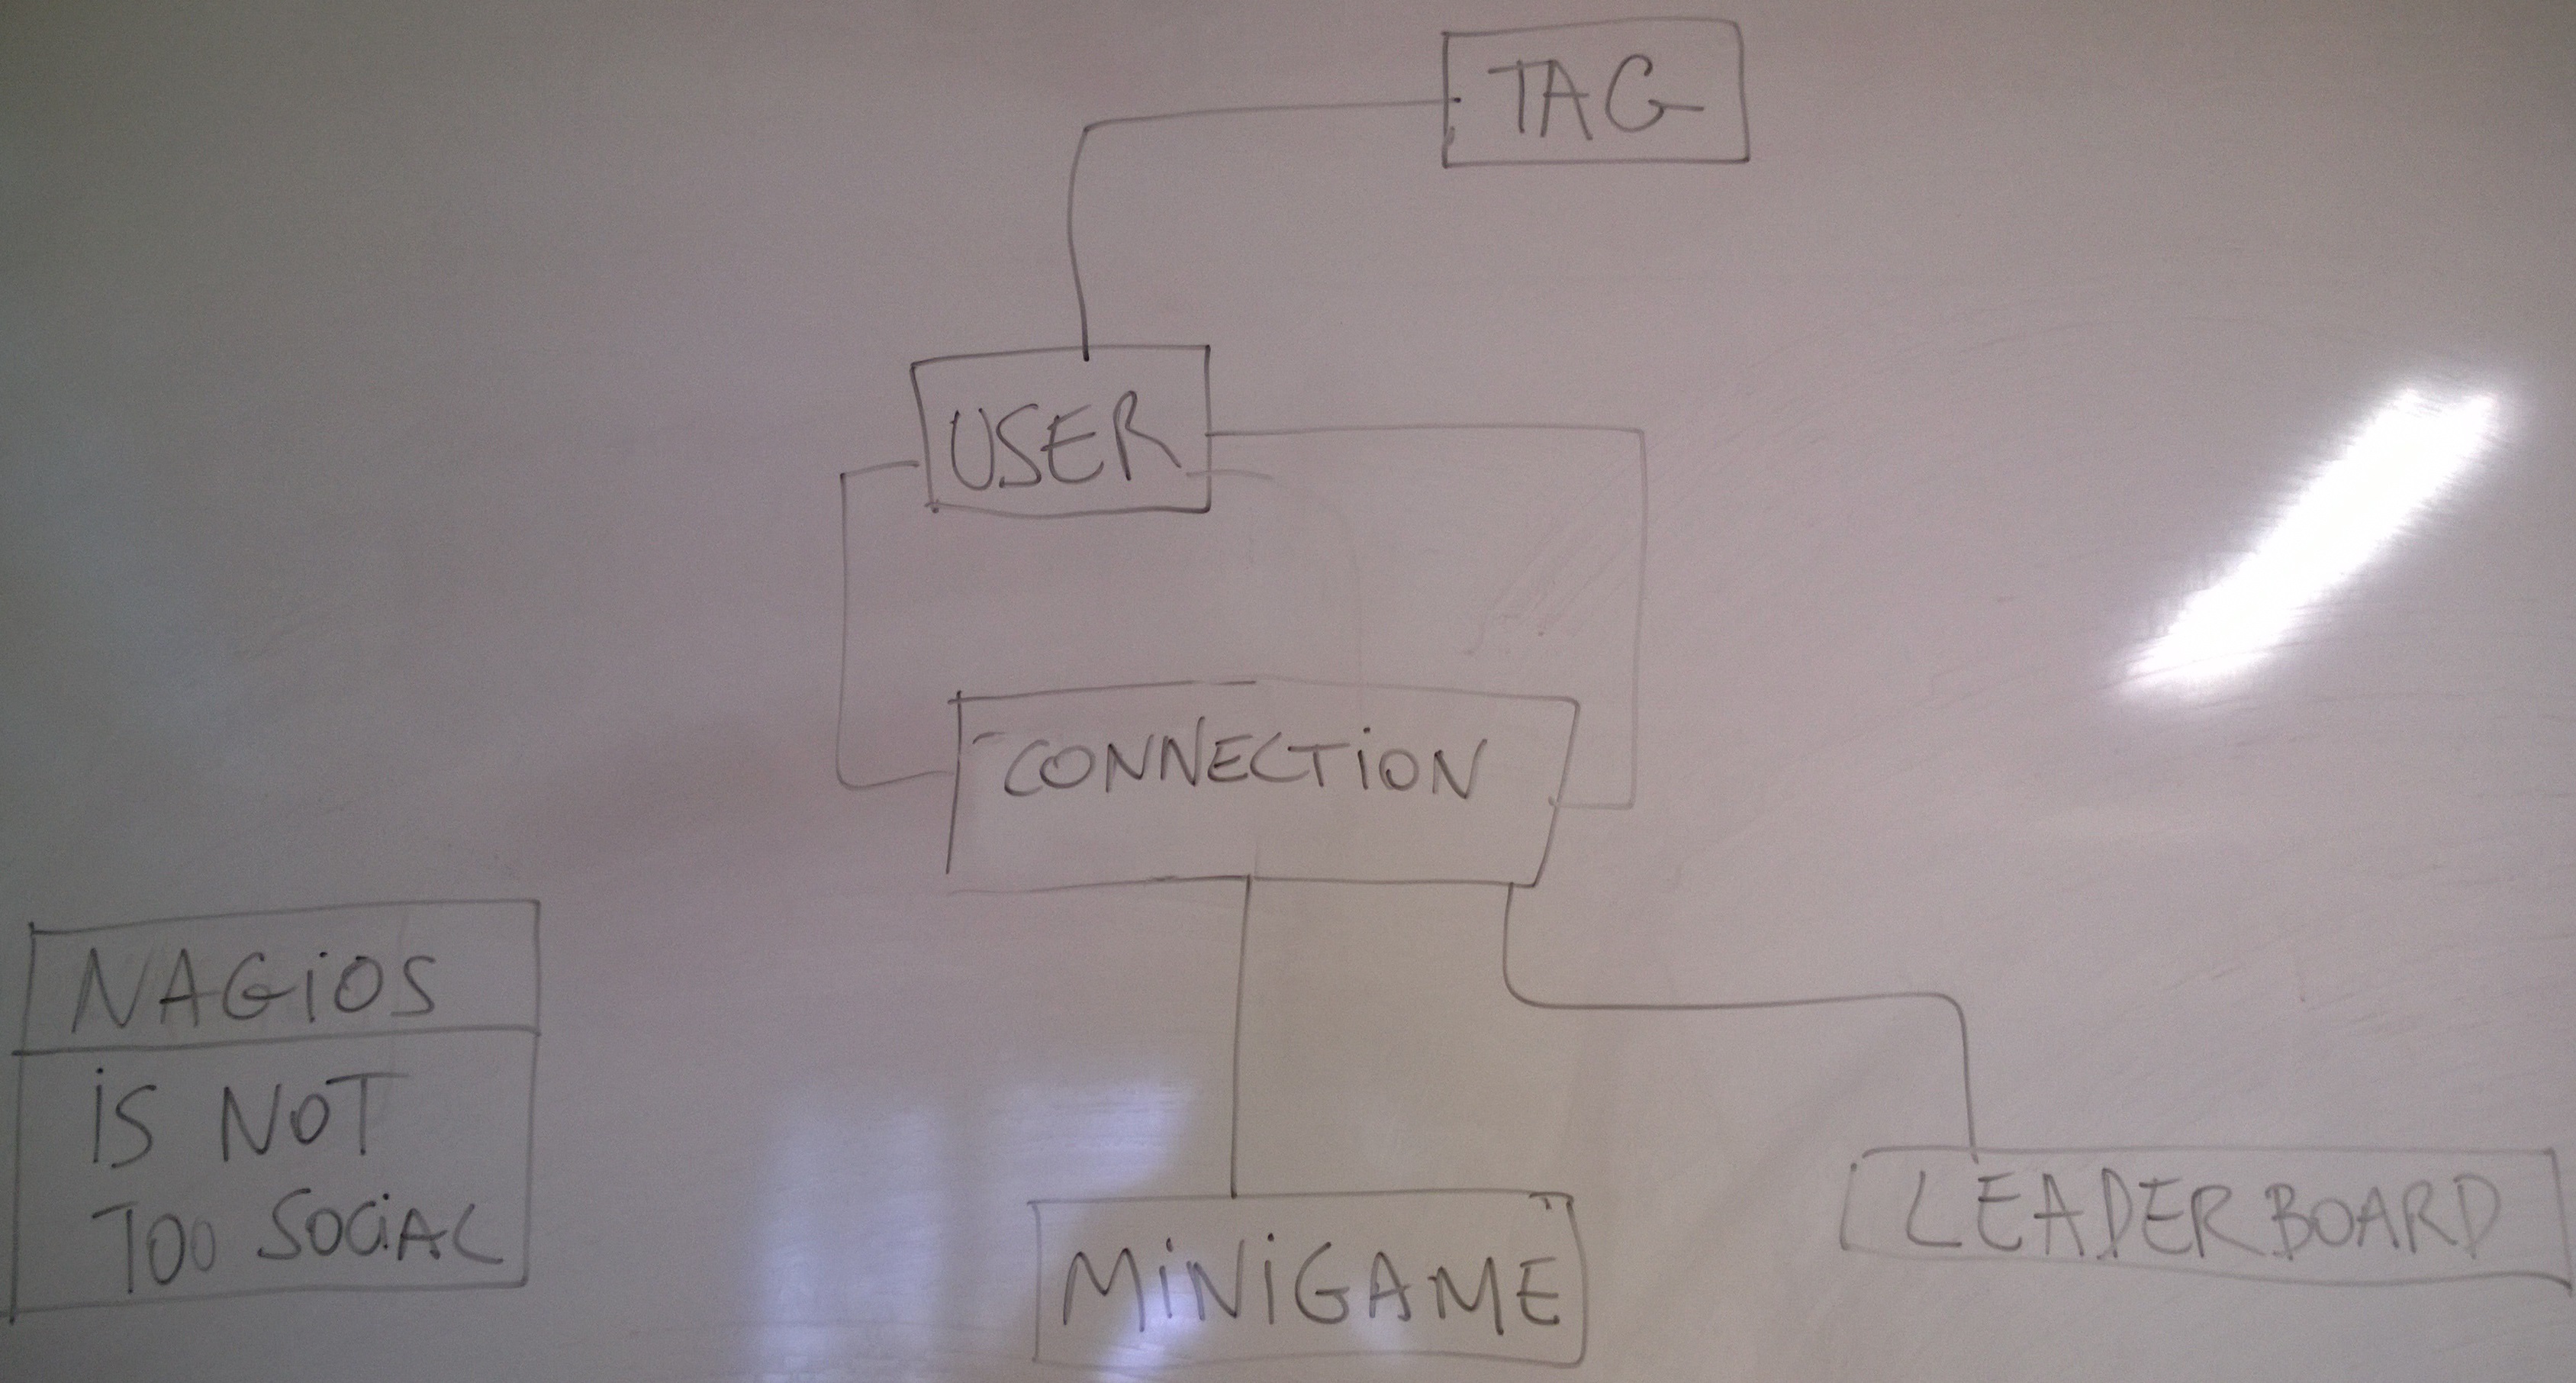 TAG
USER
CONNECTION
NAGiOS
iS NOT
TOO SOCiAL
MiNiGAME
LEADERBOARD